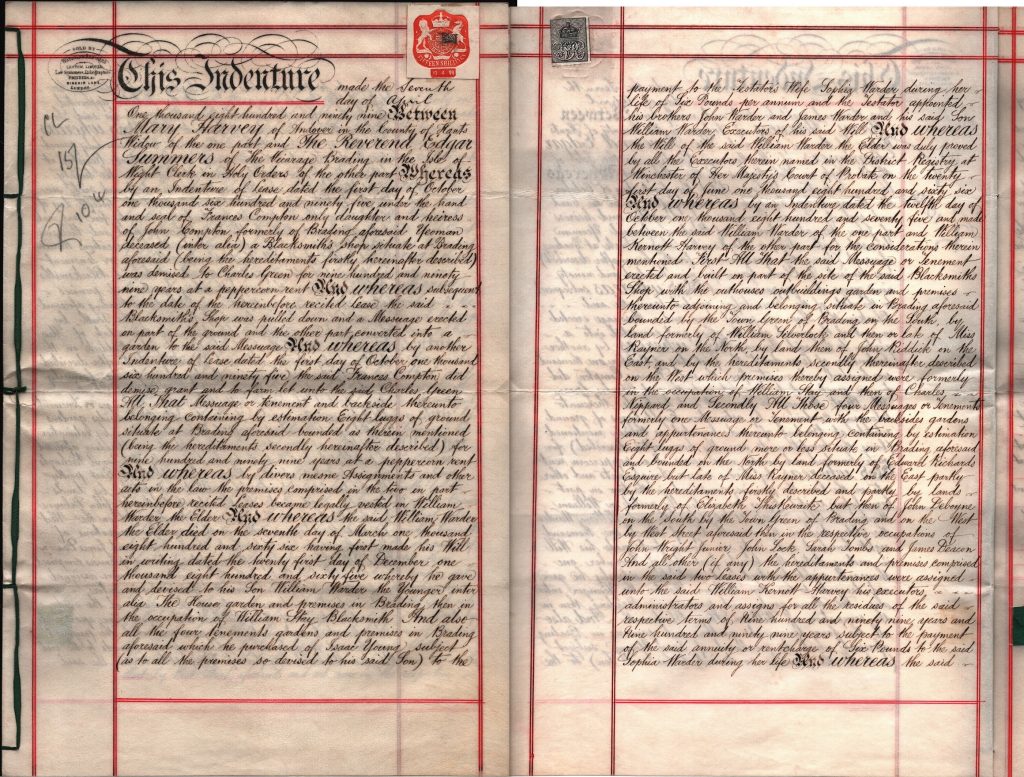 SOLD BY
LONDON
This Indenture made the Seventh
day of April
One thousand eight hundred and ninety nine Between
Mary Harvey of Andover in the County of Hants
Widow of the one part and The Reverend Edgar
Summers of The Vicarage Brading in the Isle of
Wight Clerk in Holy Orders of the other part Whereas
by an Indenture of lease dated the first day of October
one thousand six hundred and ninety five under the hand
and seal of Frances Compton only daughter and heiress
of John Compton formerly of Brading aforesaid Yeoman
deceased (inter alia) a Blacksmith's shop situate at Brading
aforesaid (being the hereditaments firstly hereinafter described)
was demised to Charles Green for nine hundred and ninety
nine years at a peppercorn rent And whereas subsequent
to the date of the hereinbefore recited lease the said
Blacksmith's Shop was pulled down and a Messuage erected
on part of the ground and the other part converted into a
garden to the said Messuage And whereas by another
Indenture of Lease dated the first day of October one thousand
six hundred and ninety five the said Frances Compton did
demise grant and to farm let unto the said Charles Green
All That Messuage or Tenement and backside thereunto
belonging containing by estimation Eight lugs of ground
situate at Brading aforesaid bounded as therein mentioned
(being the hereditaments secondly hereinafter described) for
nine hundred and ninety nine years at a peppercorn rent
And whereas by divers mesne Assignments and other
acts in the law the premises comprised in the two in part
hereinbefore recited leases became legally vested in William
Warder the Elder And whereas the said William Warder
the Elder died on the seventh day of March one thousand
eight hundred and sixty six having first made his Will
in writing dated the twenty first day of December one
thousand eight hundred and sixty five whereby he gave
and devised to his Son William Warder the Younger inter
alia The House garden and premises in Brading then in
the occupation of William Hay Blacksmith And also
all the four tenements gardens and premises in Brading
aforesaid which he purchased of Isaac Young subject
(as to all the premises so devised to his said Son) to the
payment to the Testators Wife Sophia Warder during her
life of Six Pounds per annum and the Testator appointed
his brothers John Warder and James Warder and his said Son
William Warder Executors of his said Will And whereas
the Will of the said William Warder the Elder was duly proved
by all the Executors therein named in the District Registry at
Winchester of Her Majesty's Court of Probate on the twenty
first day of June one thousand eight hundred and sixty six
And whereas by an Indenture dated the twelfth day of
October one thousand eight hundred and seventy five and made
between the said William Warder of the one part and William
Kernott Harvey of the other part for the considerations therein
mentioned First All That the said Messuage or Tenement
erected and built in part of the site of the said Blacksmiths
Shop with the outhouses outbuildings garden and premises
thereunto adjoining and belonging situate in Brading aforesaid
bounded by the Town Green of Brading on the South by
land formerly of William and then or late of Miss
Rayner on the North by land then of John Riddick on the
East and by the hereditaments secondly hereinafter described
on the West which premises thereby assigned were formerly
in the occupation of William Hay and then of Charles
Rippard and Secondly All those four Messuages or Tenements
formerly one Messuage or Tenement with the backsides gardens
and appurtenances thereunto belonging containing by estimation
Eight lugs of ground more or less situate in Brading aforesaid
and bounded on the North by land formerly of Edward Richards
Esquire but late of Miss Rayner deceased on the East partly
by the hereditaments firstly described and partly by lands
formerly of Elizabeth but then of John
on the South by the Town Green of Brading and on the West
by West Street aforesaid then in the respective occupations of
John Wright Junior John Lock Sarah Tombs and James Deacon
And all other (if any) the hereditaments and premises comprised
in the said two leases with the appurtenances were assigned
unto the said William Kernott Harvey his executors
administrators and assigns for all the residues of the said
respective terms of Nine hundred and ninety nine years and
Nine hundred and ninety nine years subject to the payment
of the said annuity or rentcharge of Six Pounds to the said
Sophia Warder during her life And whereas the said